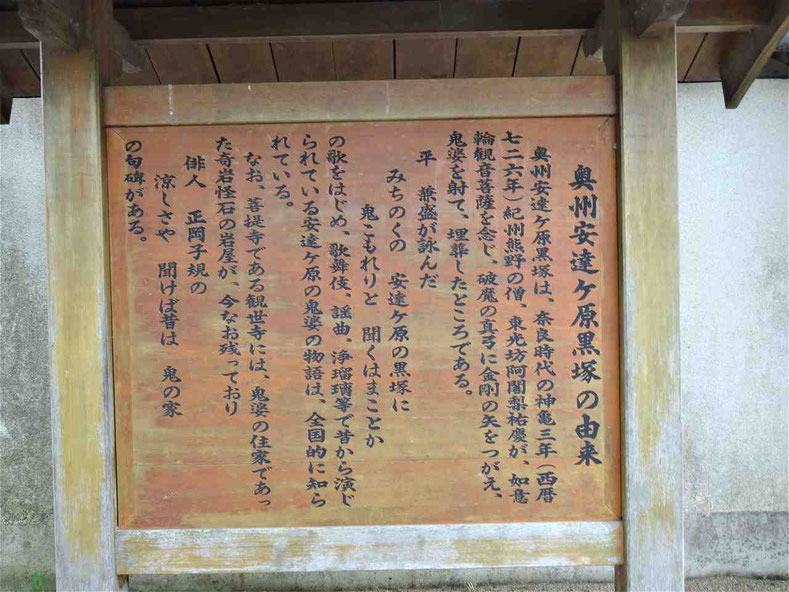 奥州安達ケ原黒塚の由来
奥州安達ケ原黒塚は、奈良時代の神亀三年（西暦
七二六年）紀州熊野の僧、東光坊阿闍梨祐慶が、如意
輪観音菩薩を念じ、破魔の真弓に金剛の矢をつがえ、
鬼婆を射て、埋葬したところである。
平　兼盛が詠んだ
みちのくの　安達ケ原の黒塚に
鬼こもれりと　聞くはまことか
の歌をはじめ、歌舞伎、謡曲、浄瑠璃等で昔から演じ
られている安達ケ原の鬼婆の物語は、全国的に知ら
れている。
なお、菩提寺である観世寺には、鬼婆の住家であっ
た奇岩怪石の岩屋が、今なお残っており
俳人　正岡子規の
涼しさや　聞けば昔は　鬼の家
の句碑がある。